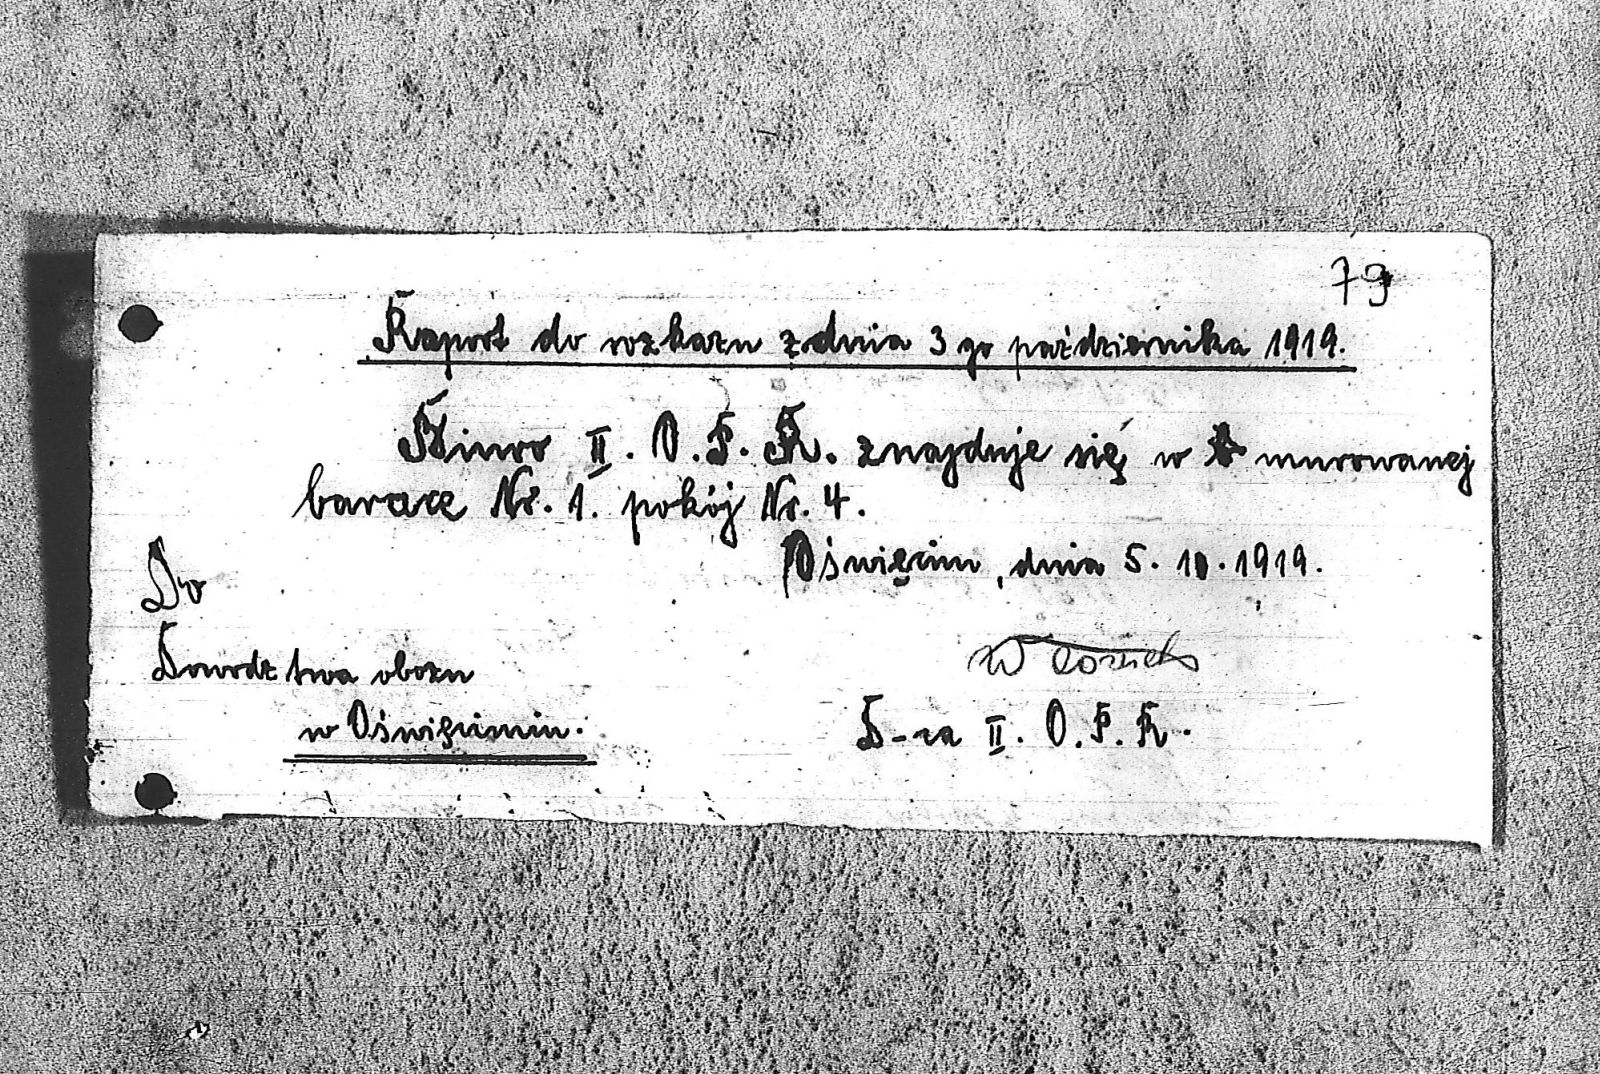 79
Raport do rozkazu z dnia 3 go października 1919.
Biuro II. O.P.K. znajduje się w murowanej
barace Nr. 1. pokój Nr. 4.
Oświęcim, dnia 5. 10. 1919.
Do
Dowodztwa obozu
w Oświęcimiu.
D-ca II. O.P.K.